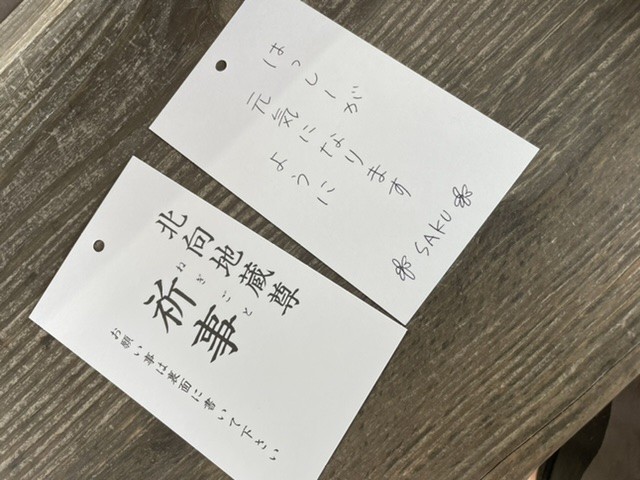 はっしーが
元気になります
ように
SAKU
北向地蔵尊
ねぎごと
祈事
お願い事は裏面に書いて下さい